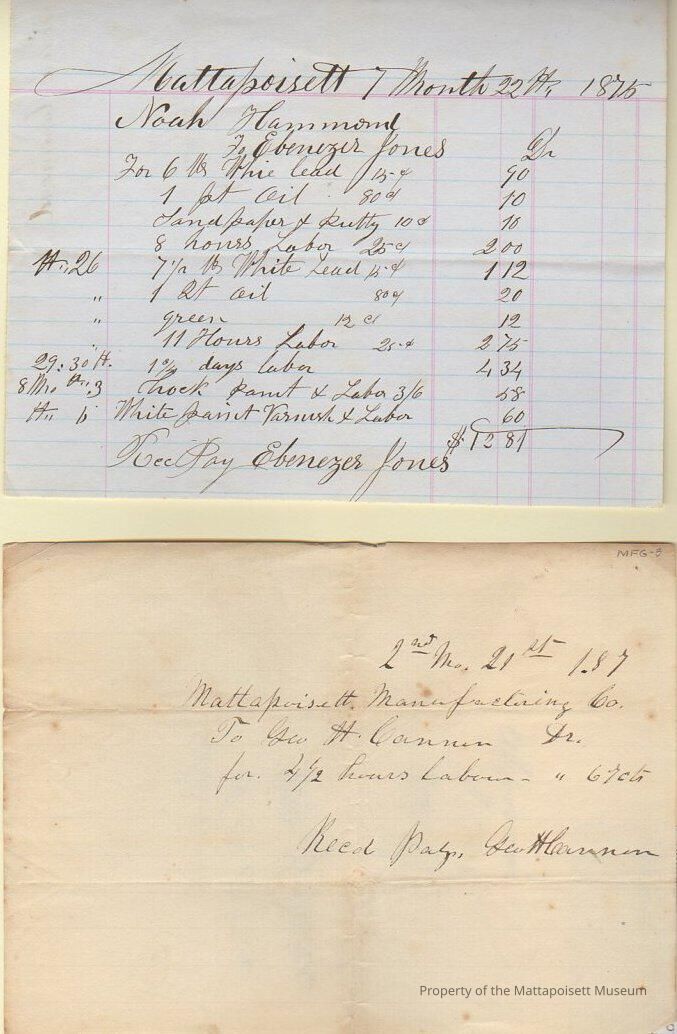 Mattapoisett 7 Month 22 th, 1875
Noah Hammond
To Ebenezer Jones Dr
For 6 lbs Whie lead 15 ¢ 90
1 pt Oil 80 ¢ 10
Sand paper & putty 10 ¢ 10
8 hours Labor 25 ¢ 2 00
th, 26 7 1/2 lbs White Lead 15 ¢ 1 12
" 1 Qt Oil 80 ¢ 20
" green 12 ct 12
" 11 Hours Labor 25 ¢ 2 75
29. 30 th. days labor 4 34
8 Mo. 3 paint & Labor 3/6 58
th. White paint Varnish & Labor 60
$ 12 81
Rec Pay Ebenezer Jones
MFG-3
2nd Mo. 21st 187
Mattapoisett Manufacturing Co.
To Geo H. Cannon Dr.
for. 4 1/2 hours labour - " 67 cts
Recd Pay, Geo H Cannon
Property of the Mattapoisett Museum